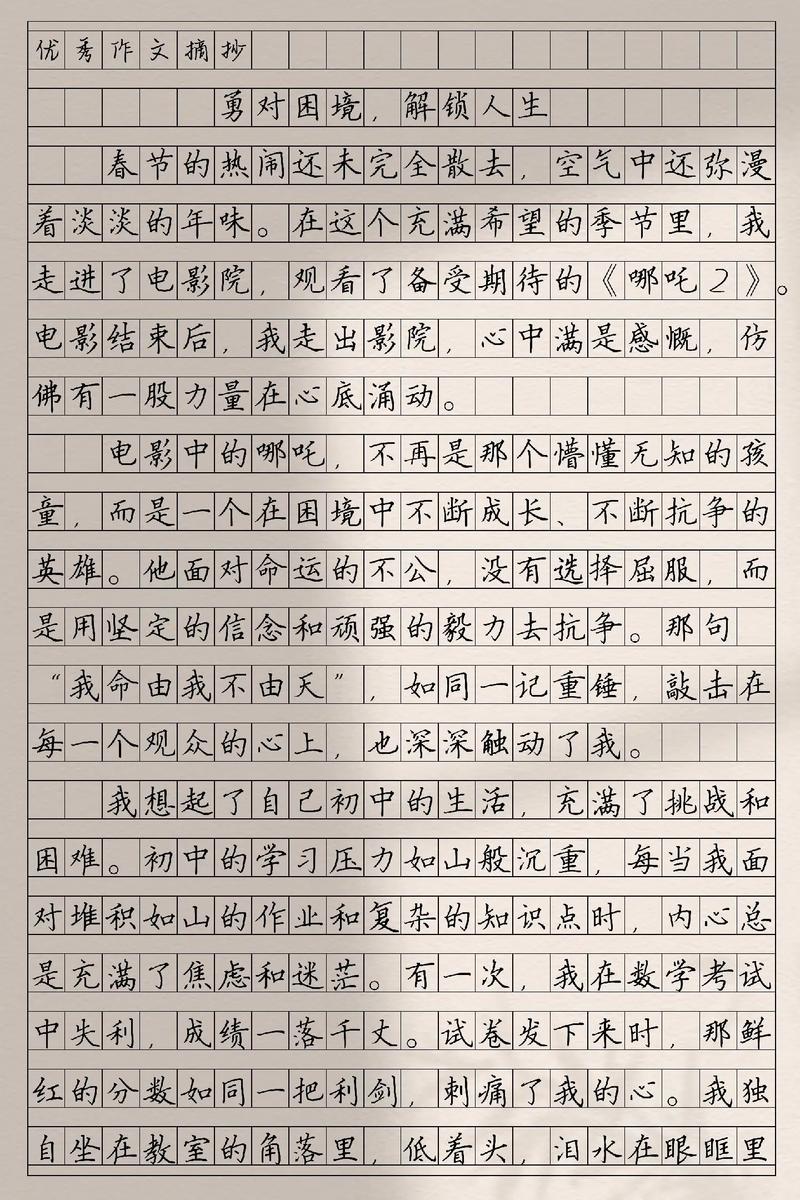 优秀作文摘抄
勇对困境，解锁人生
春节的热闹还未完全散去，空气中还弥漫
着淡淡的年味。在这个充满希望的季节里，我
走进了电影院，观看了备受期待的《哪吒2》。
电影结束后，我走出影院，心中满是感慨，仿
佛有一股力量在心底涌动。
电影中的哪吒，不再是那个懵懂无知的孩
童，而是一个在困境中不断成长、不断抗争的
英雄。他面对命运的不公，没有选择屈服，而
是用坚定的信念和顽强的毅力去抗争。那句
“我命由我不由天”，如同一记重锤，敲击在
每一个观众的心上，也深深触动了我。
我想起了自己初中的生活，充满了挑战和
困难。初中的学习压力如山般沉重，每当我面
对堆积如山的作业和复杂的知识点时，内心总
是充满了焦虑和迷茫。有一次，我在数学考试
中失利，成绩一落千丈。试卷发下来时，那鲜
红的分数如同一把利剑，刺痛了我的心。我独
自坐在教室的角落里，低着头，泪水在眼眶里